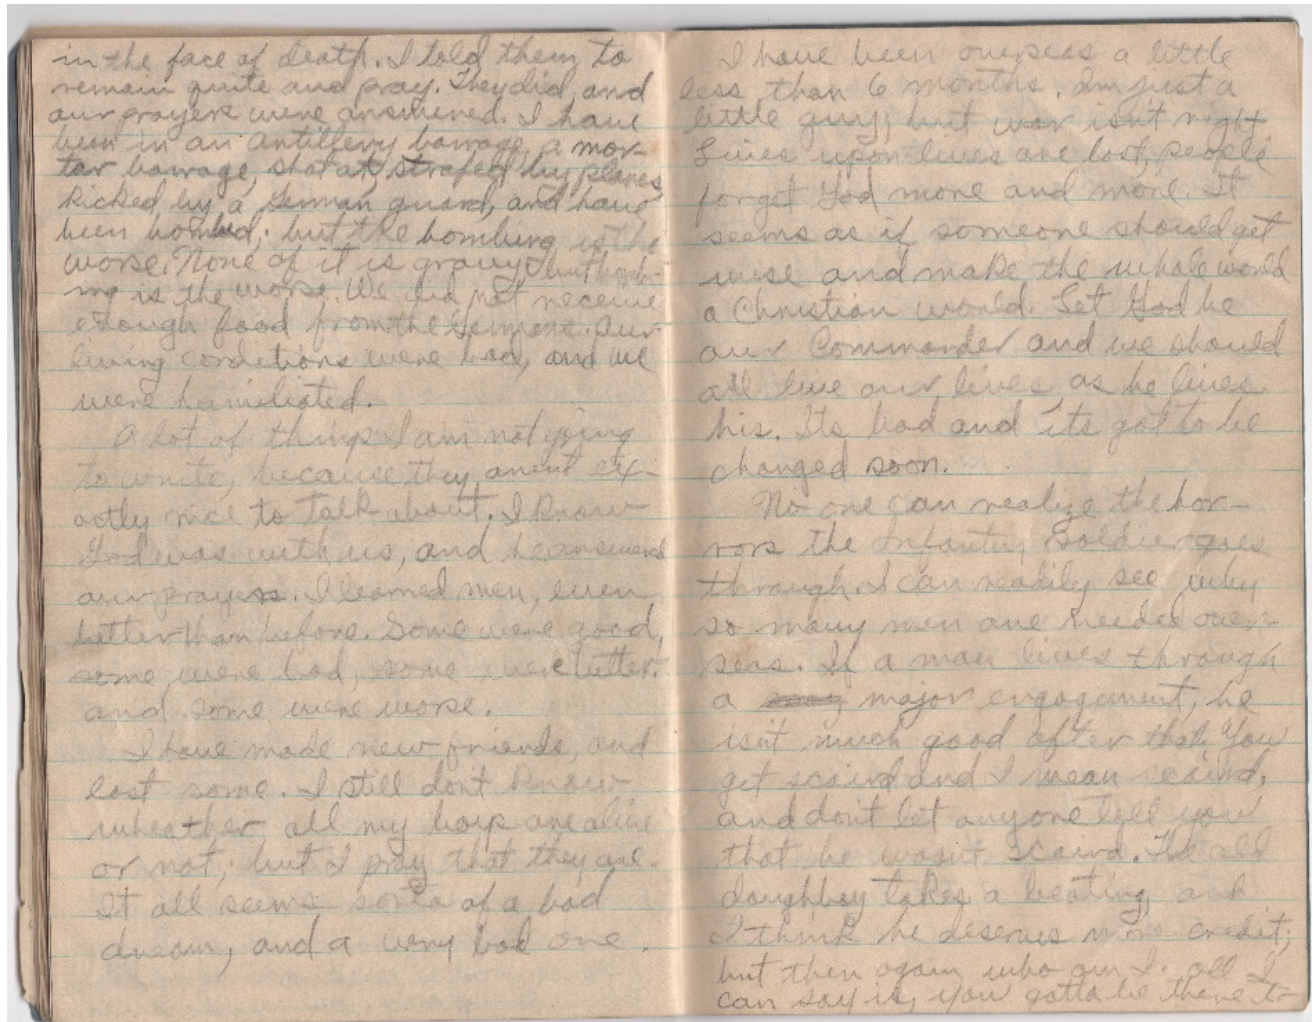 in the face of death. I told them to
remain quite and pray. They did, and
our prayers were answered. I have
been in an Antillery barrage, a mor-
tar barrage, shot at, strafed by planes,
kicked by a German guard, and have
been bombed; but the bombing is the
worse. None of it is gravy, but bomb-
ing is the worse. We did not receive
enough food from the Germans. Our
living conditions were bad, and we
were humiliated.
A lot of things I am not going
to write, because they arent ex-
actly nice to talk about. I know
God was with us, and he answered
our prayers. I learned men, even
better than before. Some were good,
some were bad, some were better
and some were worse.
I have made new friends, and
lost some. I still don't know
wheather all my boys are alive
or not; but I pray that they are.
It all seems sorta of a bad
dream, and a very bad one.
I have been overseas a little
less than 6 months. Im just a
little guy, but war isn't right.
Lives upon lives are lost, people
forget God more and more. It
seems as if someone should get
wise and make the whole world
a Christian world. Let God be
our Commander and we should
all live our lives as he lives
his. Its bad and its got to be
changed soon.
No one can realize the hor-
rors the Infantry Soldier goes
through. I can readily see why
so many men are needed over-
seas. If a man lives through
a major engagement, he
isn't much good after that. You
get scaird and I mean scaird,
and don't let anyone tell you
that he wasn't scaird. The old
doughboy takes a beating, and
I think he deserves more credit;
but then again who am I. All I
can say is, you gotta be there to